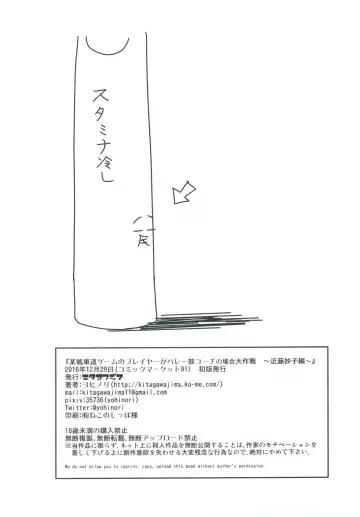 スタミナ冷し
『某戦車道ゲームのプレイヤーがバレー部コーチの場合大作戦 ～近藤妙子編～』
2016年12月29日(コミックマーケット91) 初版発行
発行:キタガワジマ
著者:ヨヒノリ(http://kitagawajima.ko-me.com/)
mail:kitagawajima11@gmail.com
pixiv:35736(yohinori)
Twitter:@yohinori
印刷:㈲ねこのしっぽ様
18歳未満の購入禁止
無断複製、無断転載、無断アップロード禁止
※当作品に限らず、ネット上に同人作品を無断公開することは、作家のモチベーションを
著しく下げる上に創作意欲を失わせる大変残念な行為なので、絶対にやめて下さい。
We do not allow you to reprint, copy, upload this book without author's permission.